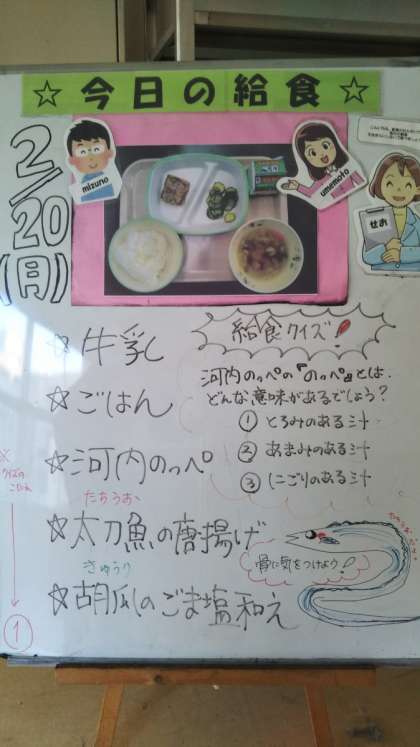 ☆今日の給食☆
2/20(月)
mizuno
umemoto
せお
☆牛乳
☆ごはん
☆河内のっぺ
たちうお
☆太刀魚の唐揚げ
きゅうり
☆胡瓜のごま塩和え
給食クイズ!
河内のっぺの『のっぺ』とは、
どんな意味があるでしょう?
① とろみのある汁
② あまみのある汁
③ にごりのある汁
骨に気をつけよう!
※
クイズの
こたえ
①